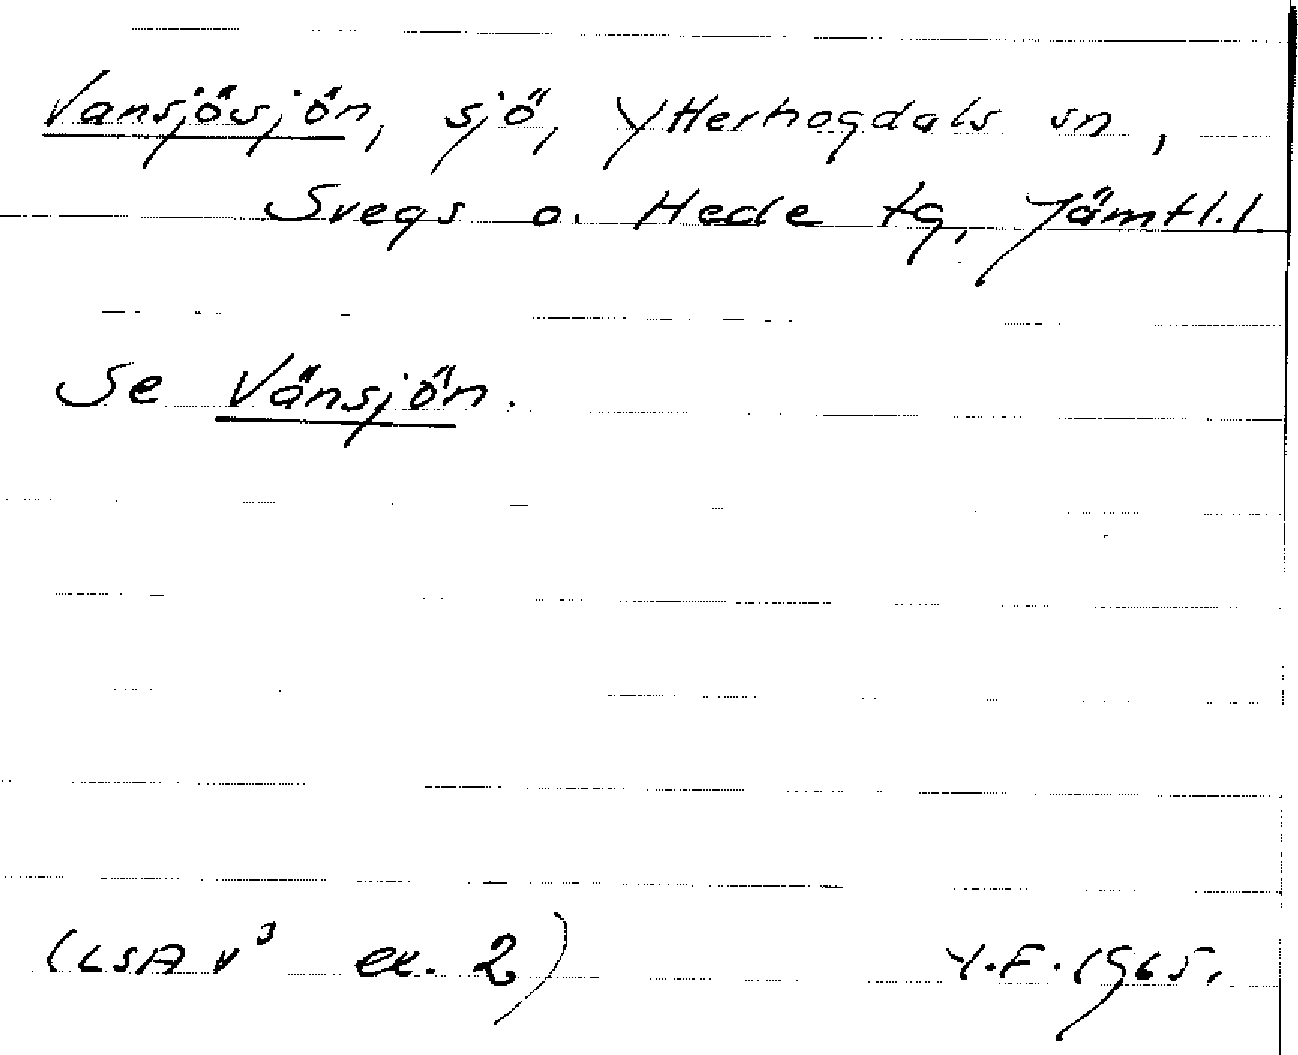 Vansjösjön, sjö, Ytterhogdals sn,
Svegs o. Hede tg, Jämtl.l.
Se Vänsjön.
(LSA v³ ex. 2) Y.F. 1965.